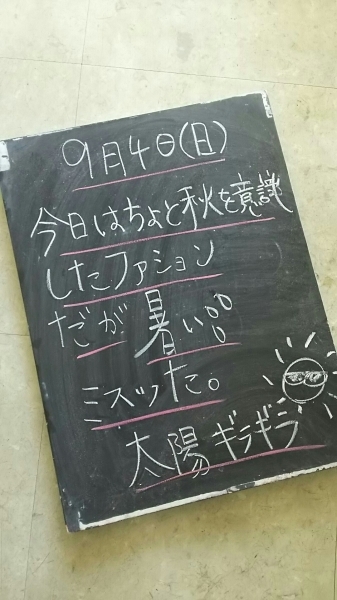 9月4日(日)
今日はちょと秋を意識
したファション
だが暑い!!
ミスッた。
太陽ギラギラ